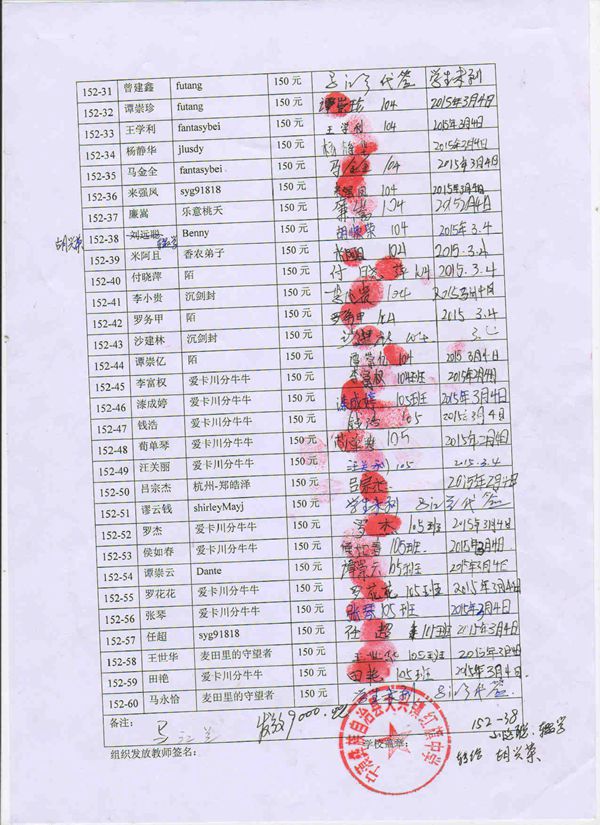 152-31 曾建鑫 futang 150元 代签 学生未到
152-32 谭崇珍 futang 150元 谭崇珍 104 2015年3月4日
152-33 王学利 fantasybei 150元 王学利 104 2015年3月4日
152-34 杨静华 jlusdy 150元 杨静华 2015年3月4日
152-35 马金全 fantasybei 150元 马金全 104 2015年3月4日
152-36 来强凤 syg91818 150元 来强凤 104 2015年3月4日
152-37 廉嵩 乐意桃夭 150元 廉嵩 104
胡兴荣 152-38 刘远聪 辍学 Benny 150元 胡兴荣 104 2015年3.4
152-39 米阿且 香农弟子 150元 104 2015.3.4
152-40 付晓萍 陌 150元 付晓萍 104 2015.3.4
152-41 李小贵 沉剑封 150元 李小贵 104 2015年3月4日
152-42 罗务甲 陌 150元 罗务甲 104 2015 3.4
152-43 沙建林 沉剑封 150元 沙建林
152-44 谭崇亿 陌 150元 谭崇亿 104 2015年3月4日
152-45 李富权 爱卡川分牛牛 150元 李富权 104班
152-46 漆成婷 爱卡川分牛牛 150元 漆成婷 105班 2015年3月4日
152-47 钱浩 爱卡川分牛牛 150元 钱浩 105 2015年3月4日
152-48 蔔单琴 爱卡川分牛牛 150元 105
152-49 汪关丽 爱卡川分牛牛 150元 汪关丽 105 2015.3.4
152-50 吕宗杰 杭州-郑皓泽 150元 吕宗杰
152-51 谬云钱 shirleyMayj 150元 学生未到 代签
152-52 罗杰 爱卡川分牛牛 150元 罗杰 105班 2015年3月4日
152-53 侯如春 爱卡川分牛牛 150元 侯如春 105班 2015年3月4日
152-54 谭崇云 Dante 150元 谭崇云 105班 2015年3月4日
152-55 罗花花 爱卡川分牛牛 150元 罗花花 105班 2015年3月4日
152-56 张琴 爱卡川分牛牛 150元 张琴 105班 2015年3月4日
152-57 任超 syg91818 150元 任超 2015年3月4日
152-58 王世华 麦田里的守望者 150元 王世华 105班 2015年3月4日
152-59 田艳 爱卡川分牛牛 150元 田艳 105班 2015年3月4日
152-60 马永恰 麦田里的守望者 150元 学生未到 代签
备注： 发放9000.元 152-38
组织发放教师签名： 学校盖章： 辍学
胡兴荣